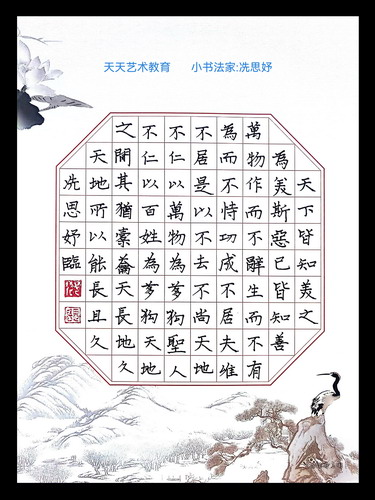 天天艺术教育 小书法家:冼思妤
天下皆知美之
為美斯惡已皆知善
萬物作而不辭生而不有
為而不恃功成不居夫維
不居是以不去不尚天地
不仁以萬物為芻狗聖人
不仁以百姓為芻狗天地
之間其猶橐龠天長地久
天地所以能長且久
冼思妤臨